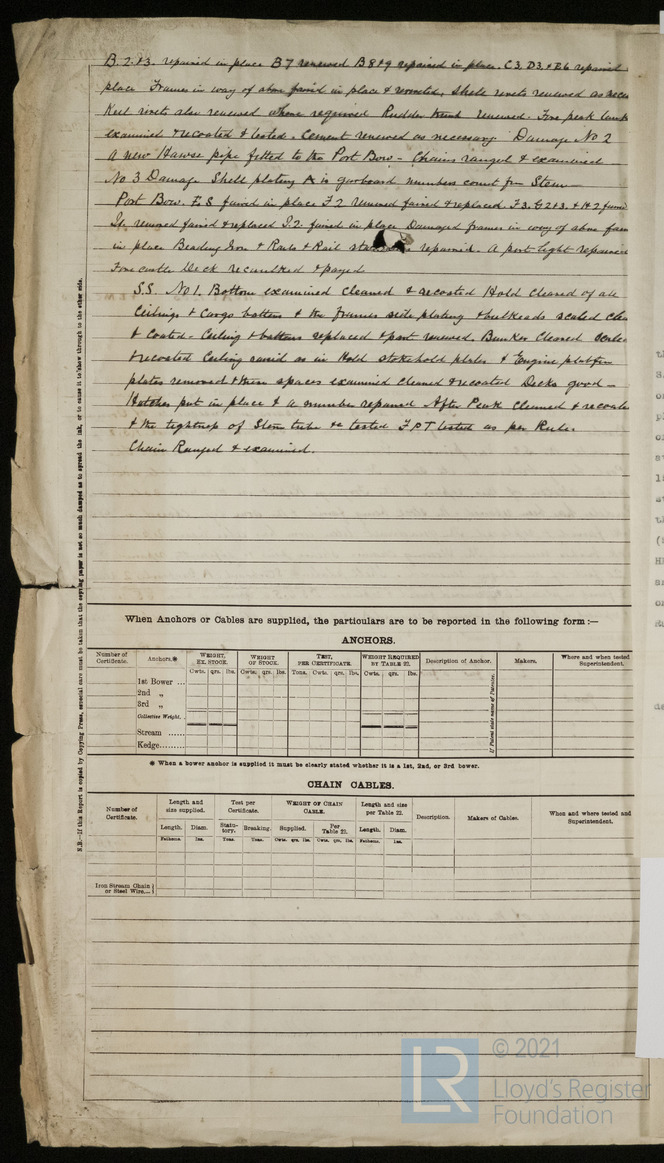 B. 2. & 3. repaired in place B7 renewed B8 & 9 repaired in place. C3. D3. & E6 repaired
place Frames in way of above faired in place & Shell rivets renewed as nece
Keel rivets also renewed where required Rudder trunk renewed. Fore peak tank
examined & recoated & tested. Cement renewed as necessary Damage No 2
A new Hawse pipe fitted to the Port Bow - Chains ranged & examined
No 3 Damage Shell plating A is garboard numbers count from Stem -
Port Bow. E. 8 faired in place F2 removed faired & replaced. F3. G2 & 3. & H2
removed faired & replaced J.2. faired in place Damaged frames in way of above fair
in place Beading Iron & Rails & Rail repaired. A port light repaired
Forecastle Deck recaulked & payed.
S.S. No 1. Bottom examined cleaned & recoated Hold cleared of all
Ceilings & Cargo battens & the frames side plating & bulkheads scaled clea
& coated - Ceiling & battens replaced & part renewed. Bunker Cleared scale
& recoated Ceiling as in Hold stokehold plates & Engine platform
plates removed & these spaces examined cleaned & recoated Decks good -
Hatches put in place & a number repaired After Peak Cleaned & recoate
& the tightness of Stern tube &c tested F P T tested as per Rule.
Chain Ranged & examined.
N.B.—If this Report is copied by Copying Press, especial care must be taken that the copying paper is not so much damped as to spread the ink, or to cause it to show through to the other side.
When Anchors or Cables are supplied, the particulars are to be reported in the following form :—
ANCHORS.
Number of Certificate. Anchors.* WEIGHT, EX. STOCK. WEIGHT OF STOCK. TEST, PER CERTIFICATE. WEIGHT REQUIRED BY TABLE 22. Description of Anchor. Makers. Where and when tested Superintendent.
Cwts. qrs. lbs. Cwts. qrs. lbs. Tons. Cwts. qrs. lbs. Cwts. qrs. lbs.
If Patent state name of Patentee.
1st Bower ...
2nd „
3rd „
Collective Weight.
Stream ......
Kedge.........
* When a bower anchor is supplied it must be clearly stated whether it is a 1st, 2nd, or 3rd bower.
CHAIN CABLES.
Number of Certificate. Length and size supplied. Test per Certificate. WEIGHT OF CHAIN CABLE. Length and size per Table 22. Description. Makers of Cables. When and where tested and Superintendent.
Length. Diam. Statutory. Breaking. Supplied. Per Table 22. Length. Diam.
Fathoms. Ins. Tons. Tons. Cwts. qrs. lbs. Cwts. qrs. lbs. Fathoms. Ins.
Iron Stream Chain
or Steel Wire.—
© 2021
LR
Lloyd's Register
Foundation